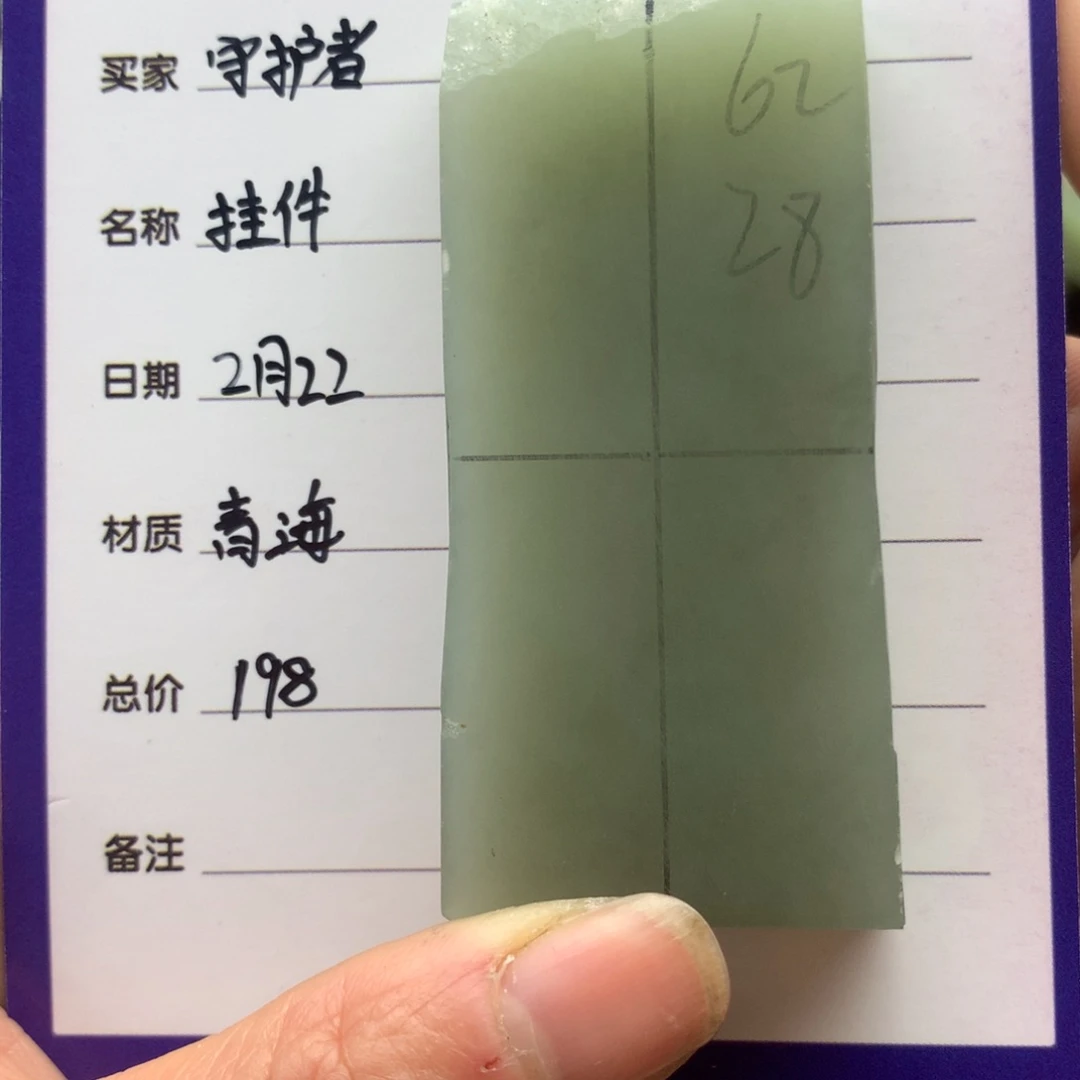 买家 守护者
名称 挂件
日期 2月22
材质 青海
总价 198
备注
62
28